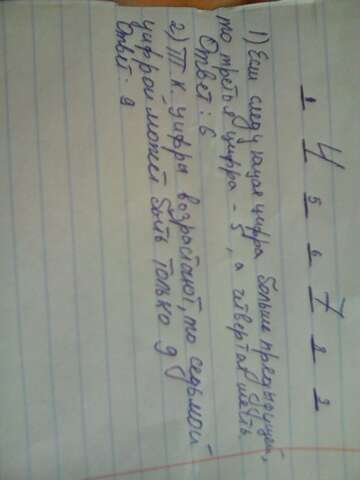 1 4 5 6 7 8 9
1) Если следующая цифра больше предыдущей,
то третья цифра - 5, а четвертая шесть
Ответ: 6
2) Т.к. цифры возрастают, то седьмой
цифрой может быть только 9
Ответ: 9